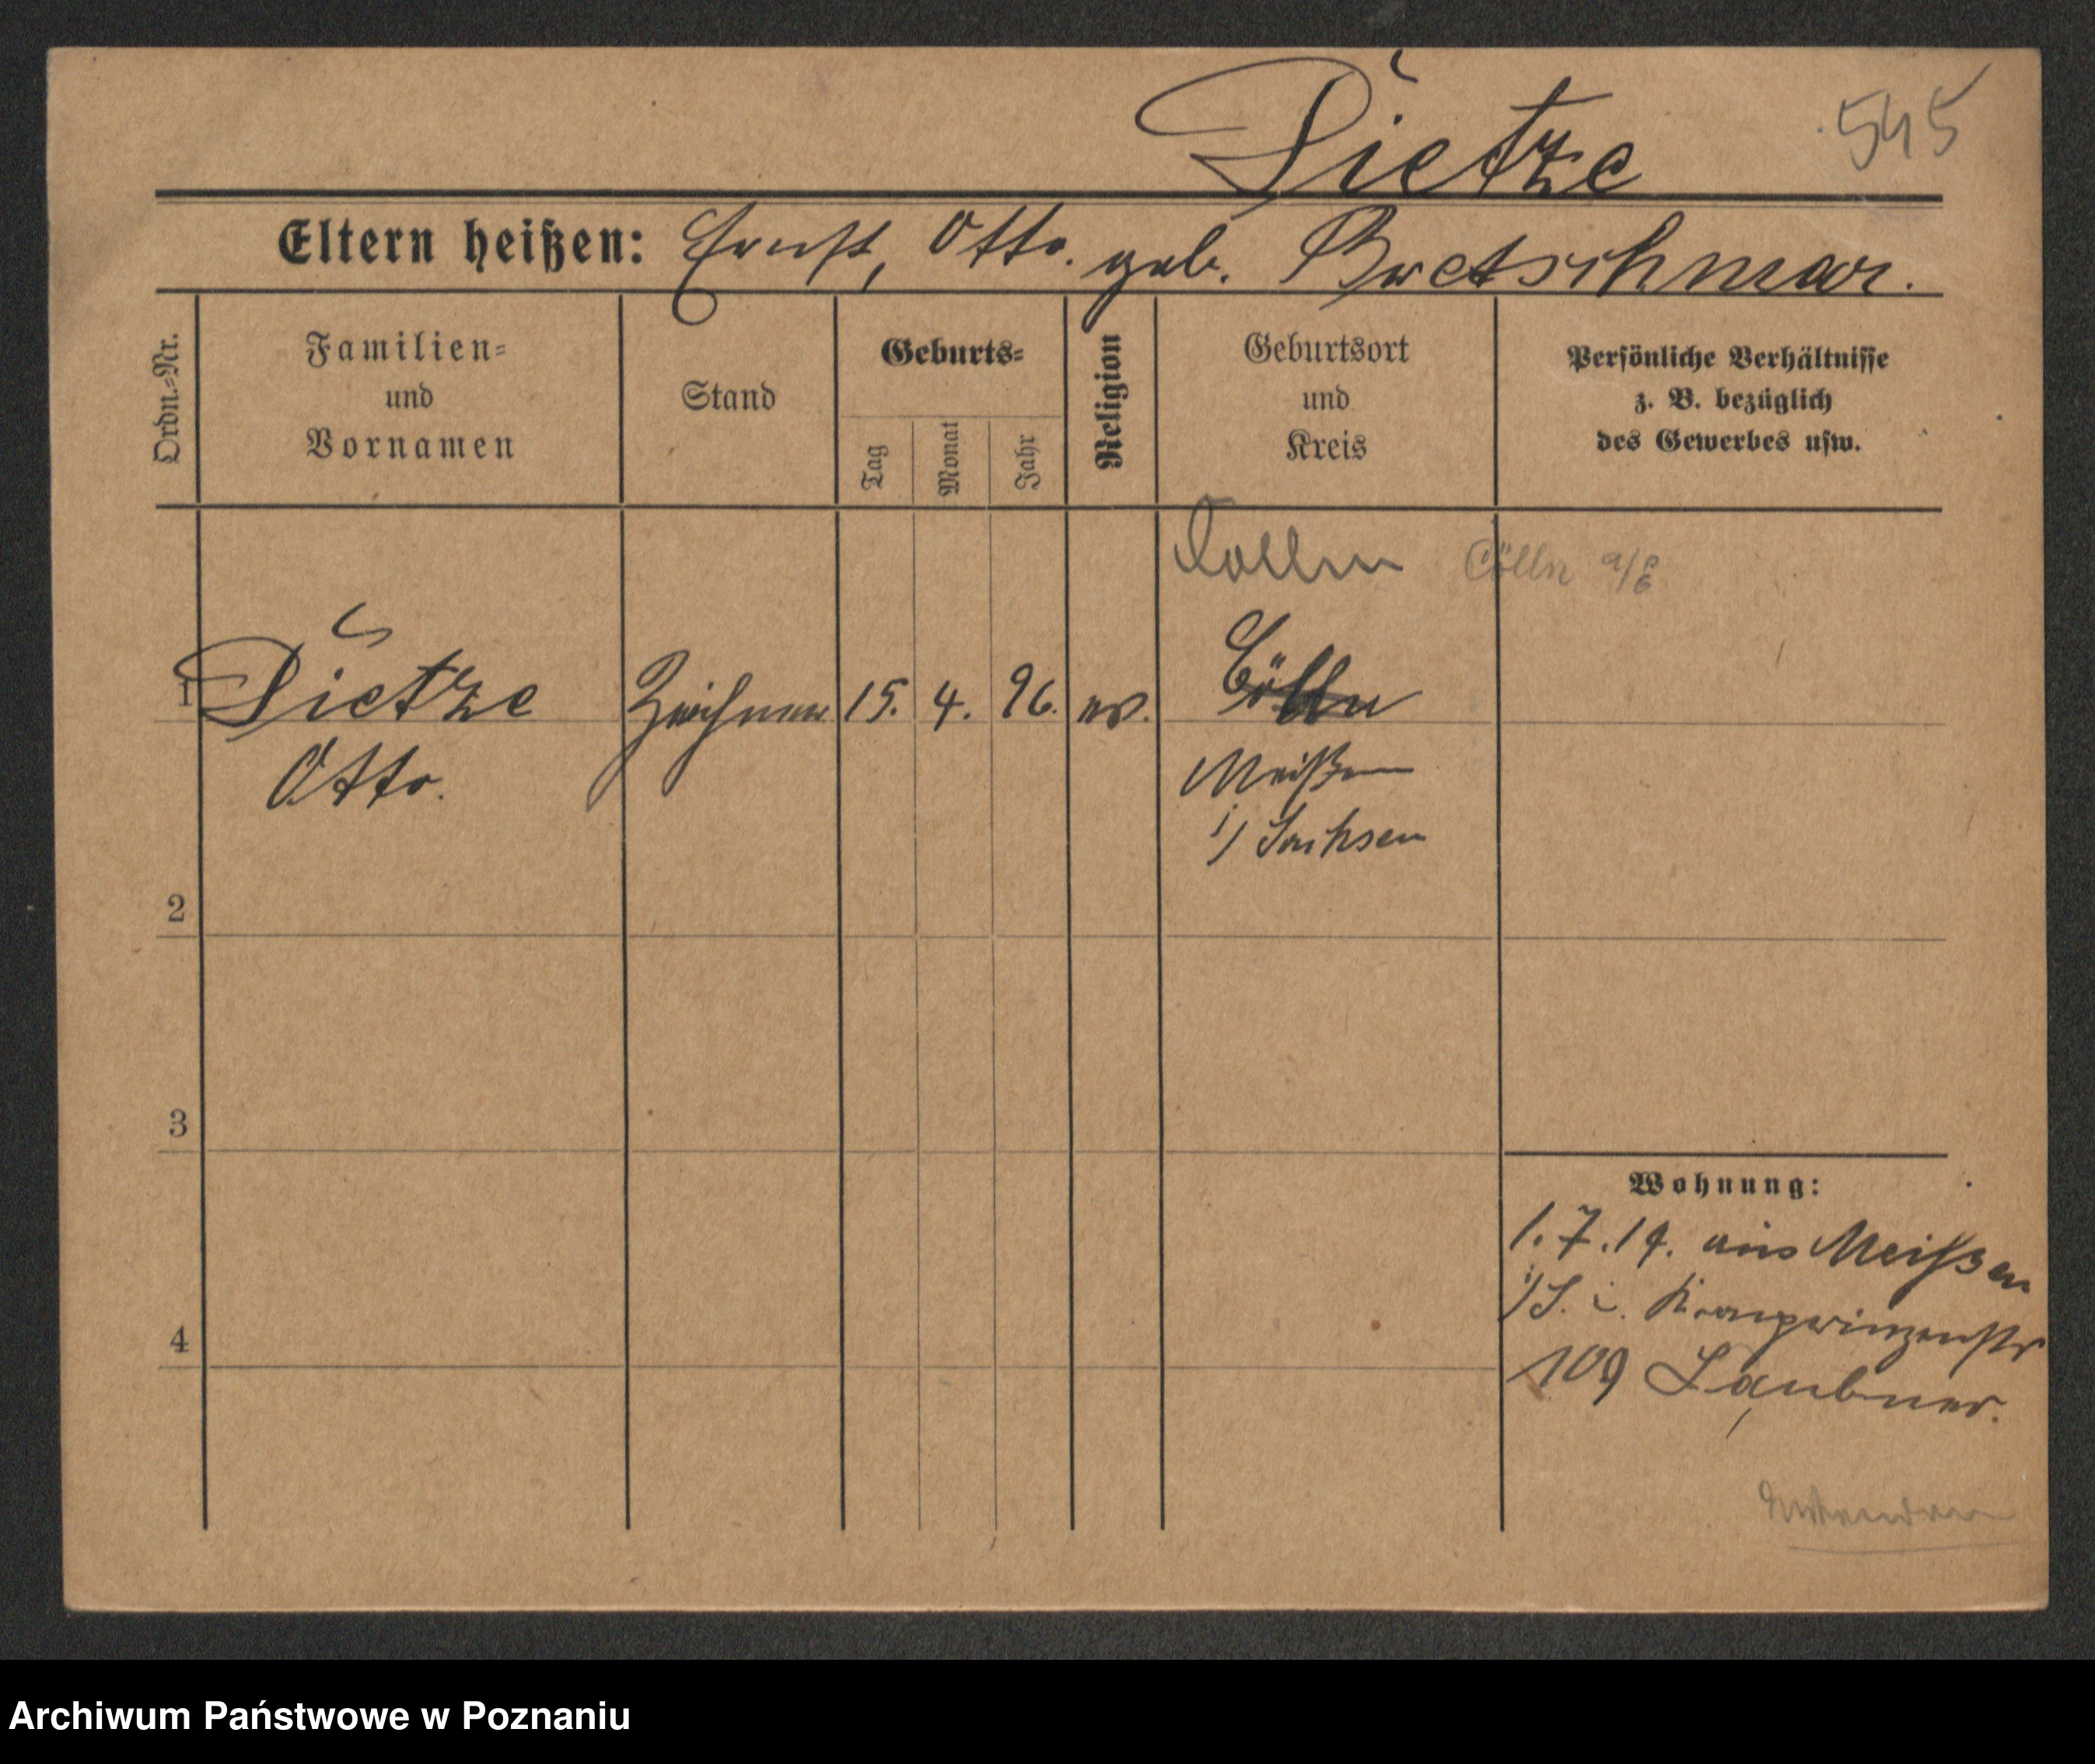 Dietze
545
Eltern heißen: Ernst, Otto. geb. Bretschmar.
Ordn.=Nr.
Familien=
und
Vornamen
Stand
Geburts=
Tag
Monat
Jahr
Religion
Geburtsort
und
Kreis
Persönliche Verhältnisse
z. B. bezüglich
des Gewerbes usw.
Cölln a/E
1 Dietze Zeichner 15. 4. 96. ev. Cölln
Otto. Meißen
i/ Sachsen
2
3
4
Wohnung:
1.7.19. aus Meißen
i/S. Kronprinzenstr
109 Laubner.
Archiwum Państwowe w Poznaniu